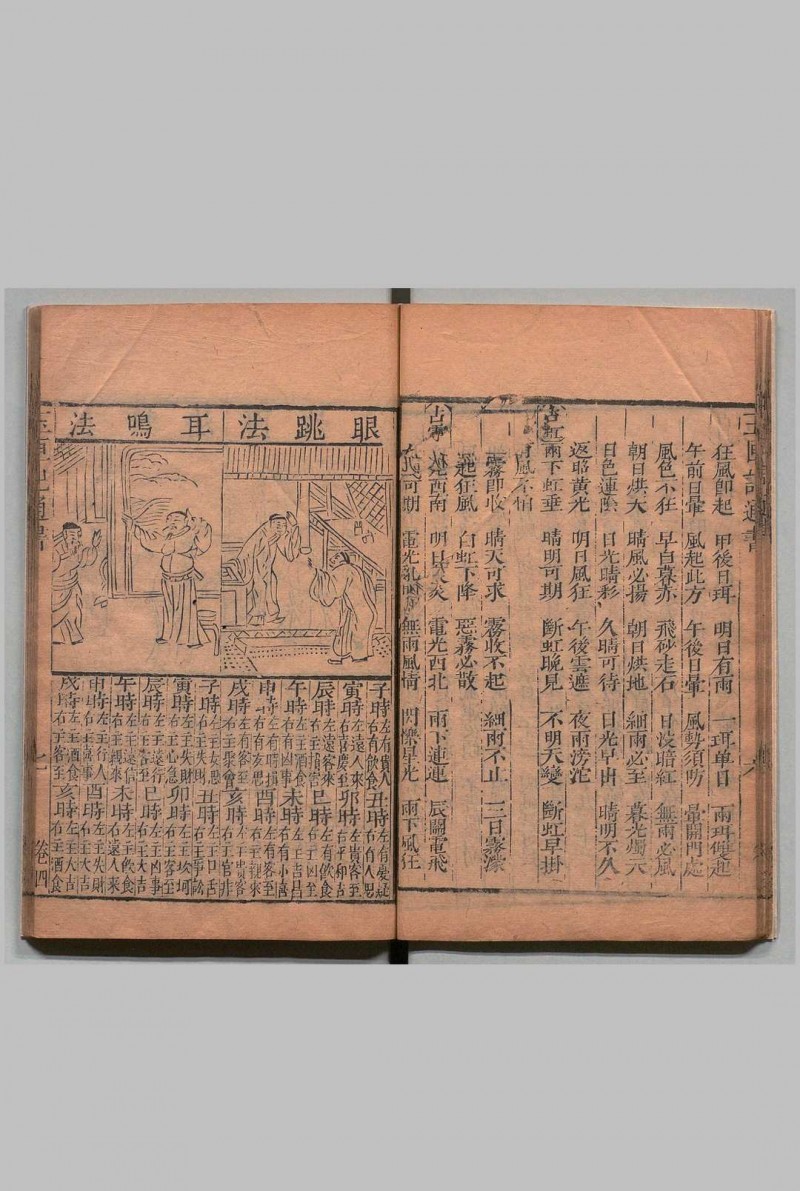 狂風即起 甲後日珥 明日有雨 一珥單日 兩珥雙起
午前日暈 風起此方 午後日暈 風勢須防 暈開門處
風色不狂 早白暮赤 飛砂走石 日沒暗紅 無雨必風
朝日烘天 晴風必揚 朝日烘地 細雨必至 暮光燭天
日色連陰 日光晴彩 久晴可待 日光早出 晴明不久
返照黃光 明日風狂 午後雲遮 夜雨滂沱
占虹
雨下虹垂 晴明可期 斷虹晚見 不明天變 斷虹早掛
有風不怕
霧即收 晴天可求 霧收不起 細雨不止 三日霧濛
起狂風 白虹下降 惡霧必散
占電
西南 明日炎炎 電光西北 雨下連連 辰闕電飛
可期 電光亂 無雨風情 閃爍星光 雨下風狂
眼跳法
耳鳴法
子時 左有貴人 右有飲食 丑時 左有憂疑 右有人思
寅時 左遠人來 右喜慶至 卯時 左貴客至 右平和吉
辰時 左遠客來 右主損害 巳時 左有飲食 右主凶至
午時 左主酒食 右有凶事 未時 左主吉昌 右有小喜
申時 右有亥思 酉時 左有客至
戌時 左有客至 右主聚會 亥時 右主官非
子時 左主女思 右主失財 丑時 左主口舌 右主事訟
寅時 左主失財 右主心急 卯時 左主坎坷 右主客至
辰時 左主遠行 右主客至 巳時 左主凶事 右主大吉
午時 左主遠信 右主親來 未時 左主飲食 右遠人來
申時 左主行人 右主喜事 酉時 左主失財 右主大吉
戌時 左主酒食 右主客至 亥時 左主大吉 右主酒食
七
卷四